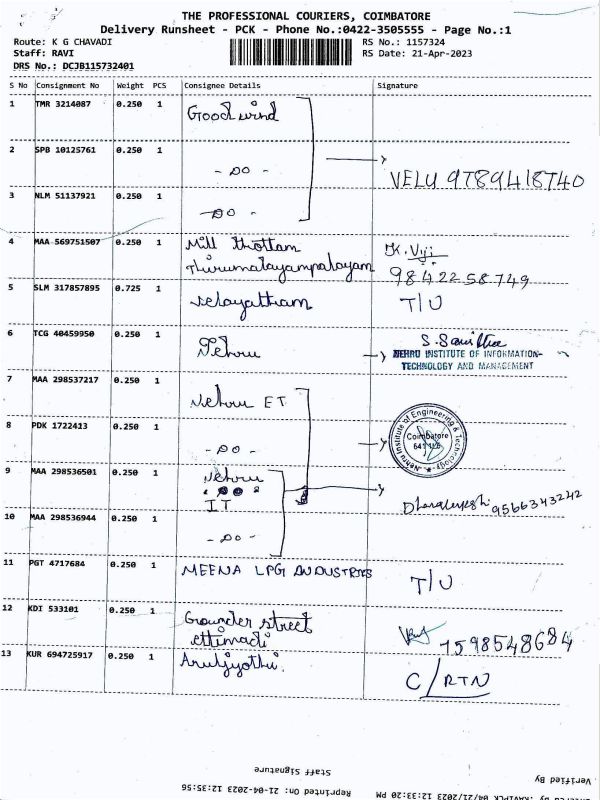 THE PROFESSIONAL COURIERS, COIMBATORE
Delivery Runsheet - PCK - Phone No.:0422-3505555 - Page No.:1
Route: K G CHAVADI RS No.: 1157324
Staff: RAVI RS Date: 21-Apr-2023
DRS No.: DCJB115732401
S No Consignment No Weight PCS Consignee Details Signature
1 TMR 3214087 0.250 1 Good wind
2 SPB 10125761 0.250 1 - DO -
VELU 9789418740
3 NLM 51137921 0.250 1 - DO -
4 MAA 569751507 0.250 1 Mill thottam K. Viji
Thirumalayampalayam 9842258749
5 SLM 317857895 0.725 1 velayattram T/U
6 TCG 40459950 0.250 1 Nehru
NEHRU INSTITUTE OF INFORMATION-
TECHNOLOGY AND MANAGEMENT
7 MAA 298537217 0.250 1 Nehru ET
8 PDK 1722413 0.250 1 - DO -
Nehru Institute of Engineering & Technology
Coimbatore
9 MAA 298536501 0.250 1 Nehru
IT
9566343242
10 MAA 298536944 0.250 1 - DO -
11 PGT 4717684 0.250 1 MEENA LPG INDUSTRIES T/U
12 KDI 533101 0.250 1 Grounder street
ettimadi 7598548684
13 KUR 694725917 0.250 1 Aruljyothi. C/RTN
Staff Signature
Verified By
Reprinted On: 21-04-2023 12:35:56
04/21/2023 12:33:20 PM